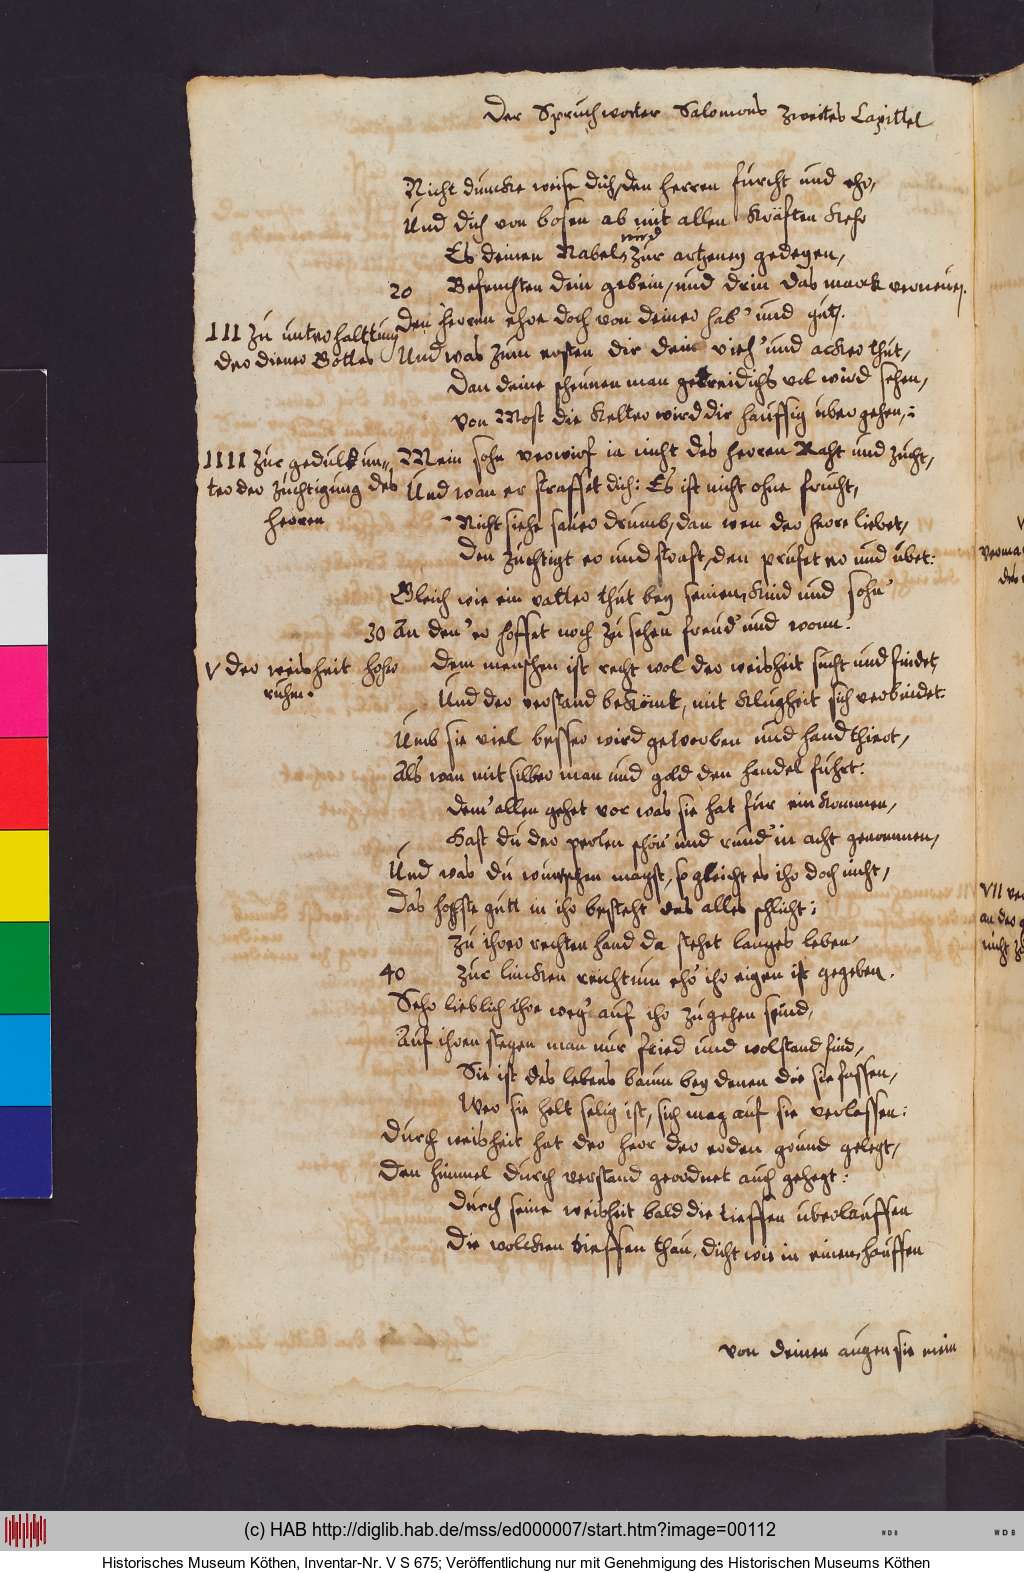 Der Spruchwortter Salomons Zweites Capittel
Nicht duncke weise dich, den herren furcht und ehr,
Und dich von bosen ab mit allen kräften kehr
wird
Es deinen Nabel, zur artzeney gedeyen,
20 Befeuchten dein gebein, und drin das marck verneuen.
Den herren ehre doch von deiner hab' und gutt.
III Zu unterhalttung
der diener Gottes
Und was zum ersten dir dein vieh' und acker thut,
Dan deine scheunen man getreidichs vol wird sehen,
Von Most die kelter wird dir hauffig uber gehen,:
IIII Zur gedult un-
ter der züchtigung des
herren
Mein sohn verwirf ia nicht des herren Raht und zucht,
Und wan er straffet dich: Es ist nicht ohne frucht,
Nicht siehe sauer drumb, dan wen der herr liebet,
Den zuchtigt er und straft, den prufet er und ubet:
Gleich wie ein vatter thut bey seinem kind und sohn'
30 An den' er hoffet noch zu sehen freud' und wonn.
V der weisheit hoher
ruhm.
Dem menschen ist recht wol der weisheit sucht und findet,
Und der verstand bekömt, mit klugheit sich verbindet.
Umb sie viel besser wird geworben und handthiert,
Als wan mit silber man und gold den handel fuhrt:
Dem' allen gehet vor was sie hat fur einkommen,
Hast du der perlen schön' und rund' in acht genommen,
Und was du wuntschen magst, so gleicht es ihr doch nicht,
Das hochste gutt in ihr besteht das alles schlicht:
Zu ihrer rechten hand da stehet langes leben,
40 Zur lincken reichtum ehr' ihr eigen ist gegeben.
Sehr lieblich ihre weg' auf ihr zu gehen seind,
Auf ihren stegen man nur fried und wolstand find,
Sie ist des lebens baum bey denen die sie fassen,
Wer sie helt selig ist, sich mag auf sie verlassen:
Durch weisheit hat der herr der erden grund gelegt,
Den himmel durch verstand geordnet auch gehegt:
Durch seine weisheit bald die tieffen uberlauffen
Die wolcken trieffen thau, dicht wie in einem hauffen
Von deinen augen sie mein
VII
an der
nicht
(c) HAB http://diglib.hab.de/mss/ed000007/start.htm?image=00112
WDB
WDB
Historisches Museum Köthen, Inventar-Nr. V S 675; Veröffentlichung nur mit Genehmigung des Historischen Museums Köthen